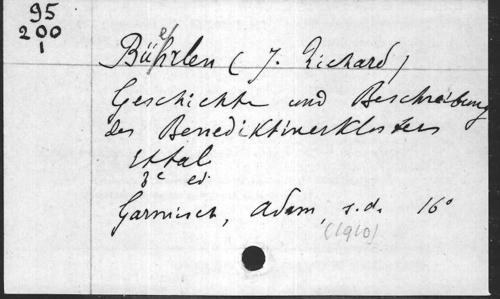 95
200
1
Büehrlen (J. Richard)
Geschichte und Beschreibung
des Benediktinerklosters
Ettal
3e ed.
Garmisch, Adam, s.d. 16°
(1910)